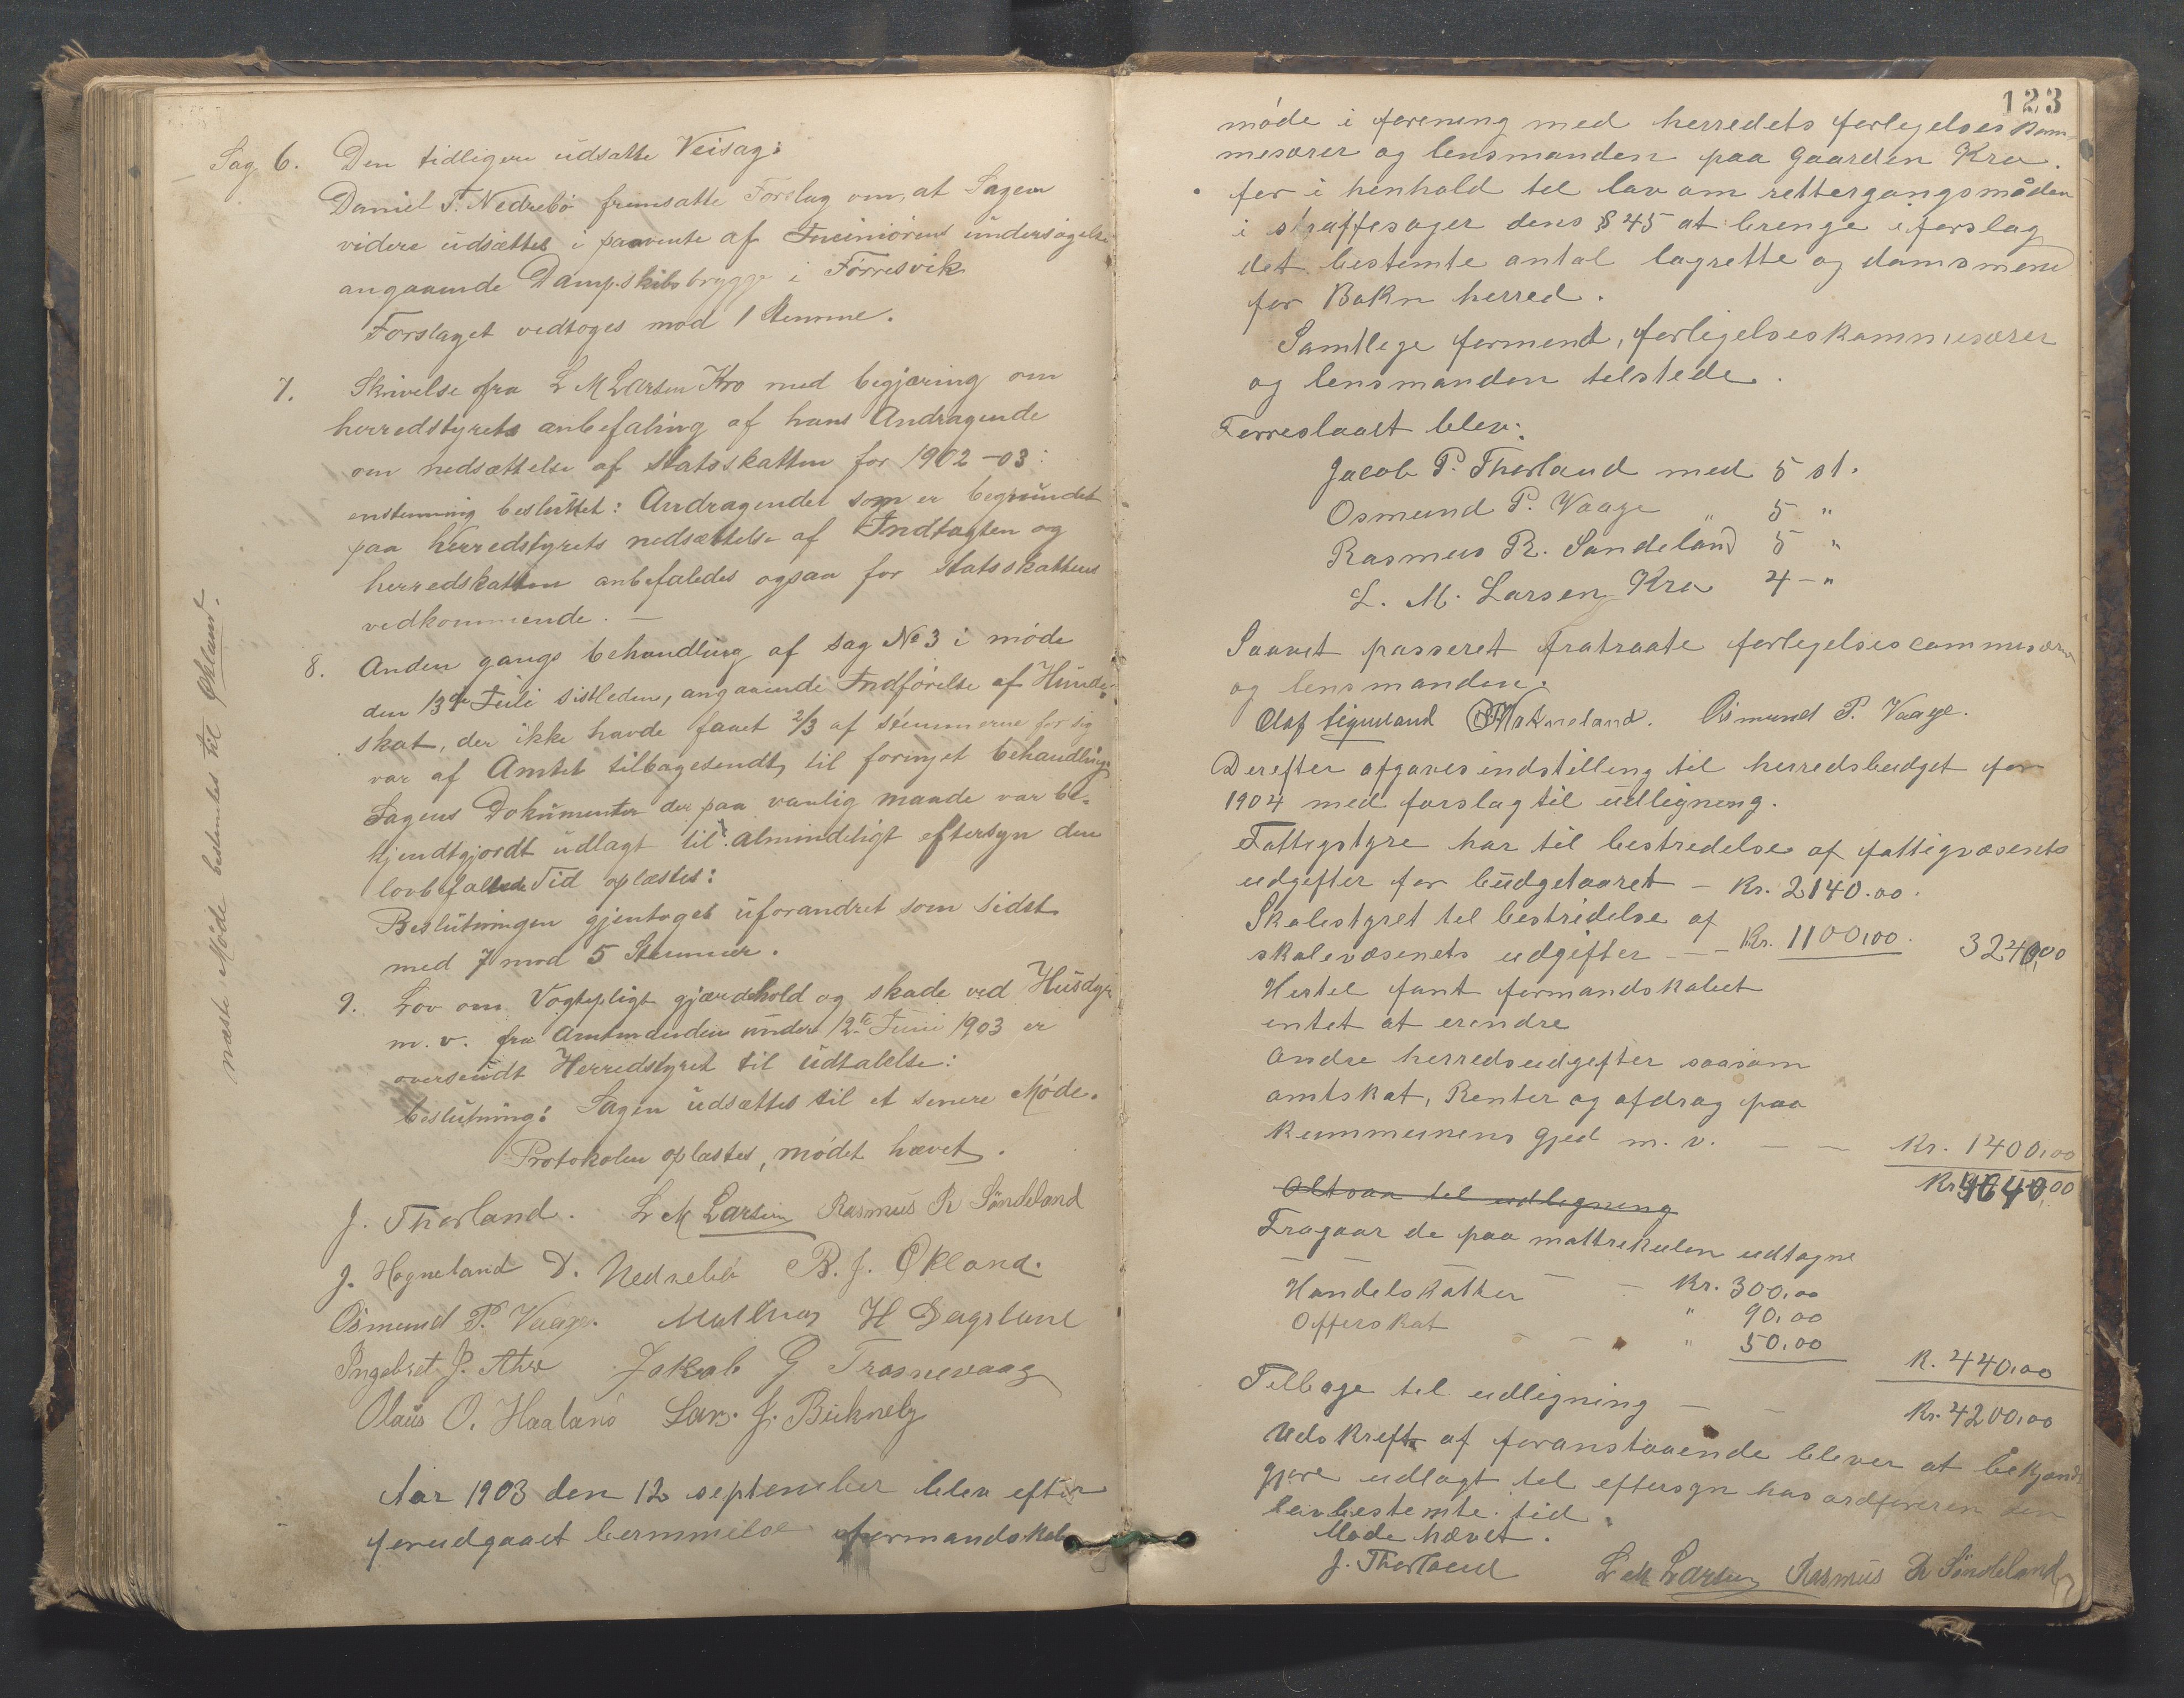 Sag 6. Den tidligere udsatte Veisag:
Daniel T. Nedrebö fremsatte Forslag om, at Sagen
videre udsættes i paavente af Inciniörens undersögelse
angaaende Dampskibsbrygge i Förresvik
Forslaget vedtoges mod 1 Stemme.
7. Skrivelse fra L M Larsen Kro med begjæring om
herredstyrets anbefaling af hans Andragende
om nedsættelse af Statsskatten for 1902-03:
enstemmig besluttet: Andragendet som er begrundet
paa herredstyrets nedsættelse af Indtægten og
herredskatten anbefaledes ogsaa for Statsskattens
vedkommende. —
8. Anden gangs behandling af sag No 3 i möde
den 13de Juli sistleden, angaaende Indförelse af Hunde-
skat, der ikke havde faaet 2/3 af stemmerne for sig
var af Amtet tilbagesendt, til fornyet behandling
Sagens Dokumenter der paa vanlig maade var be-
kjendtgjordt udlagt til almindeligt eftersyn den
lovbefalede Tid oplæstes:
Beslutningen gjentoges uforandret som sidst
med 7 mod 5 Stemmer.
9. Lov om Vogtepligt gjærdehold og skade ved Husdyr
m. v. fra Amtmanden under 12te Juni 1903 er
oversendt Herredstyret til Udtalelse:
beslutning: Sagen udsættes til et senere Möde.
Protokolen oplæstes, mödet hævet.
J. Thorland. L M Larsen Rasmus R Söndeland
J. Hogneland D. Nedrebö B. J. Økland.
Osmund P. Vaage. Mathias H Dagsland
Ingebret J. Are Jakob G Trosnevaag
Olaus O. Haaland Lars. J. Bukneby
Aar 1903 den 12 september blev efter
forudgaaet bermmelse formandskab
næste Möde bestemtes til Økland.
123
möde i forening med herredets forlegelses kom-
mesærer og lensmanden paa gaarden Kro.
for i henhold til lov om rettergangsmåden
i straffesager dens § 45 at brenge i forslag
det bestemte antal lagrette og domsmend
for Bokn herred.
Samtlege formend, forligelseskommesærer
og lensmanden telstede.
Forreslaaet blev:
Jacob P. Thorland med 5 st.
Osmund P. Vaage " 5 "
Rasmus R. Sondeland 5 "
L. M. Larsen Kro 4 – "
Saavet passeret fratraate forlegelsescommesærer
og lensmanden.
Olaf Hogneland. Osmund P. Vaage.
Derefter afgaves indstilling til herredsbudget for
1904 med forslag til udligning.
Fattigstyre har til bestredelse af fattigvæsents
udgefter for budgetaaret – Kr. 2140.00.
Skolestyret tel bestridelse af
skolevæsenets udgifter — – Kr. 1100,00. 3240,00
Hertel fant formandskabet
entet at erindre
Andre herredsudgefter saasom
amtskat, Renter og afdrag paa
kummunens gjed m. v. — — Kr. 1400,00
Kr 4640,00
Altsaa tel udligning
Fragaar de paa mattrekulen udtagne
— — — — Kr. 300,00
Handelskatter " 90,00
Offerskat — — " 50,00
K. 440,00
Tilbage til udligning — — Kr. 4200,00
Udskreft af foranstaaende blever at bekjendt
gjøre udlagt tel eftersyn hos ordføreren den
lovbestemte tid.
Møde hævet.
J. Thorland L M Larsen Rasmus R Söndeland